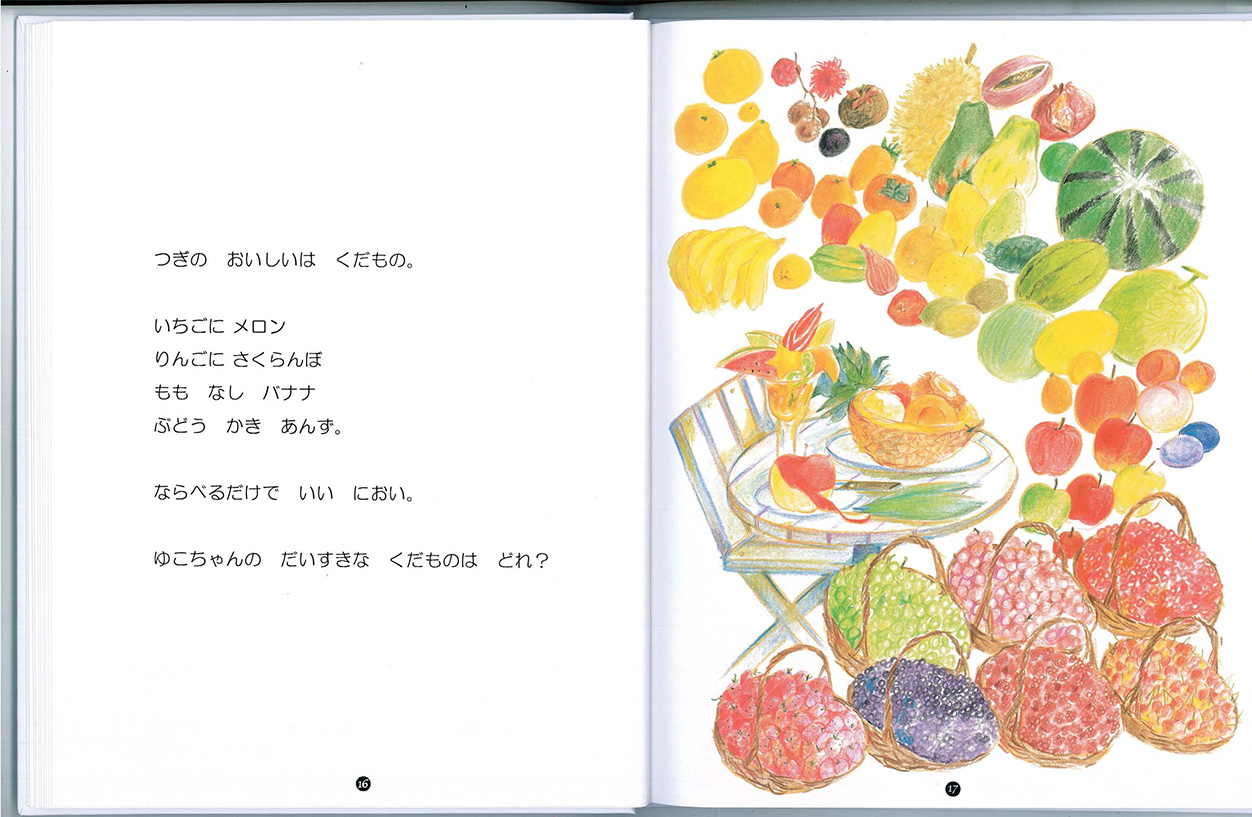 つぎの　おいしいは　くだもの。
いちごに メロン
りんごに さくらんぼ
もも　なし　バナナ
ぶどう　かき　あんず。
ならべるだけで　いい　におい。
ゆこちゃんの　だいすきな　くだものは　どれ？
16
17